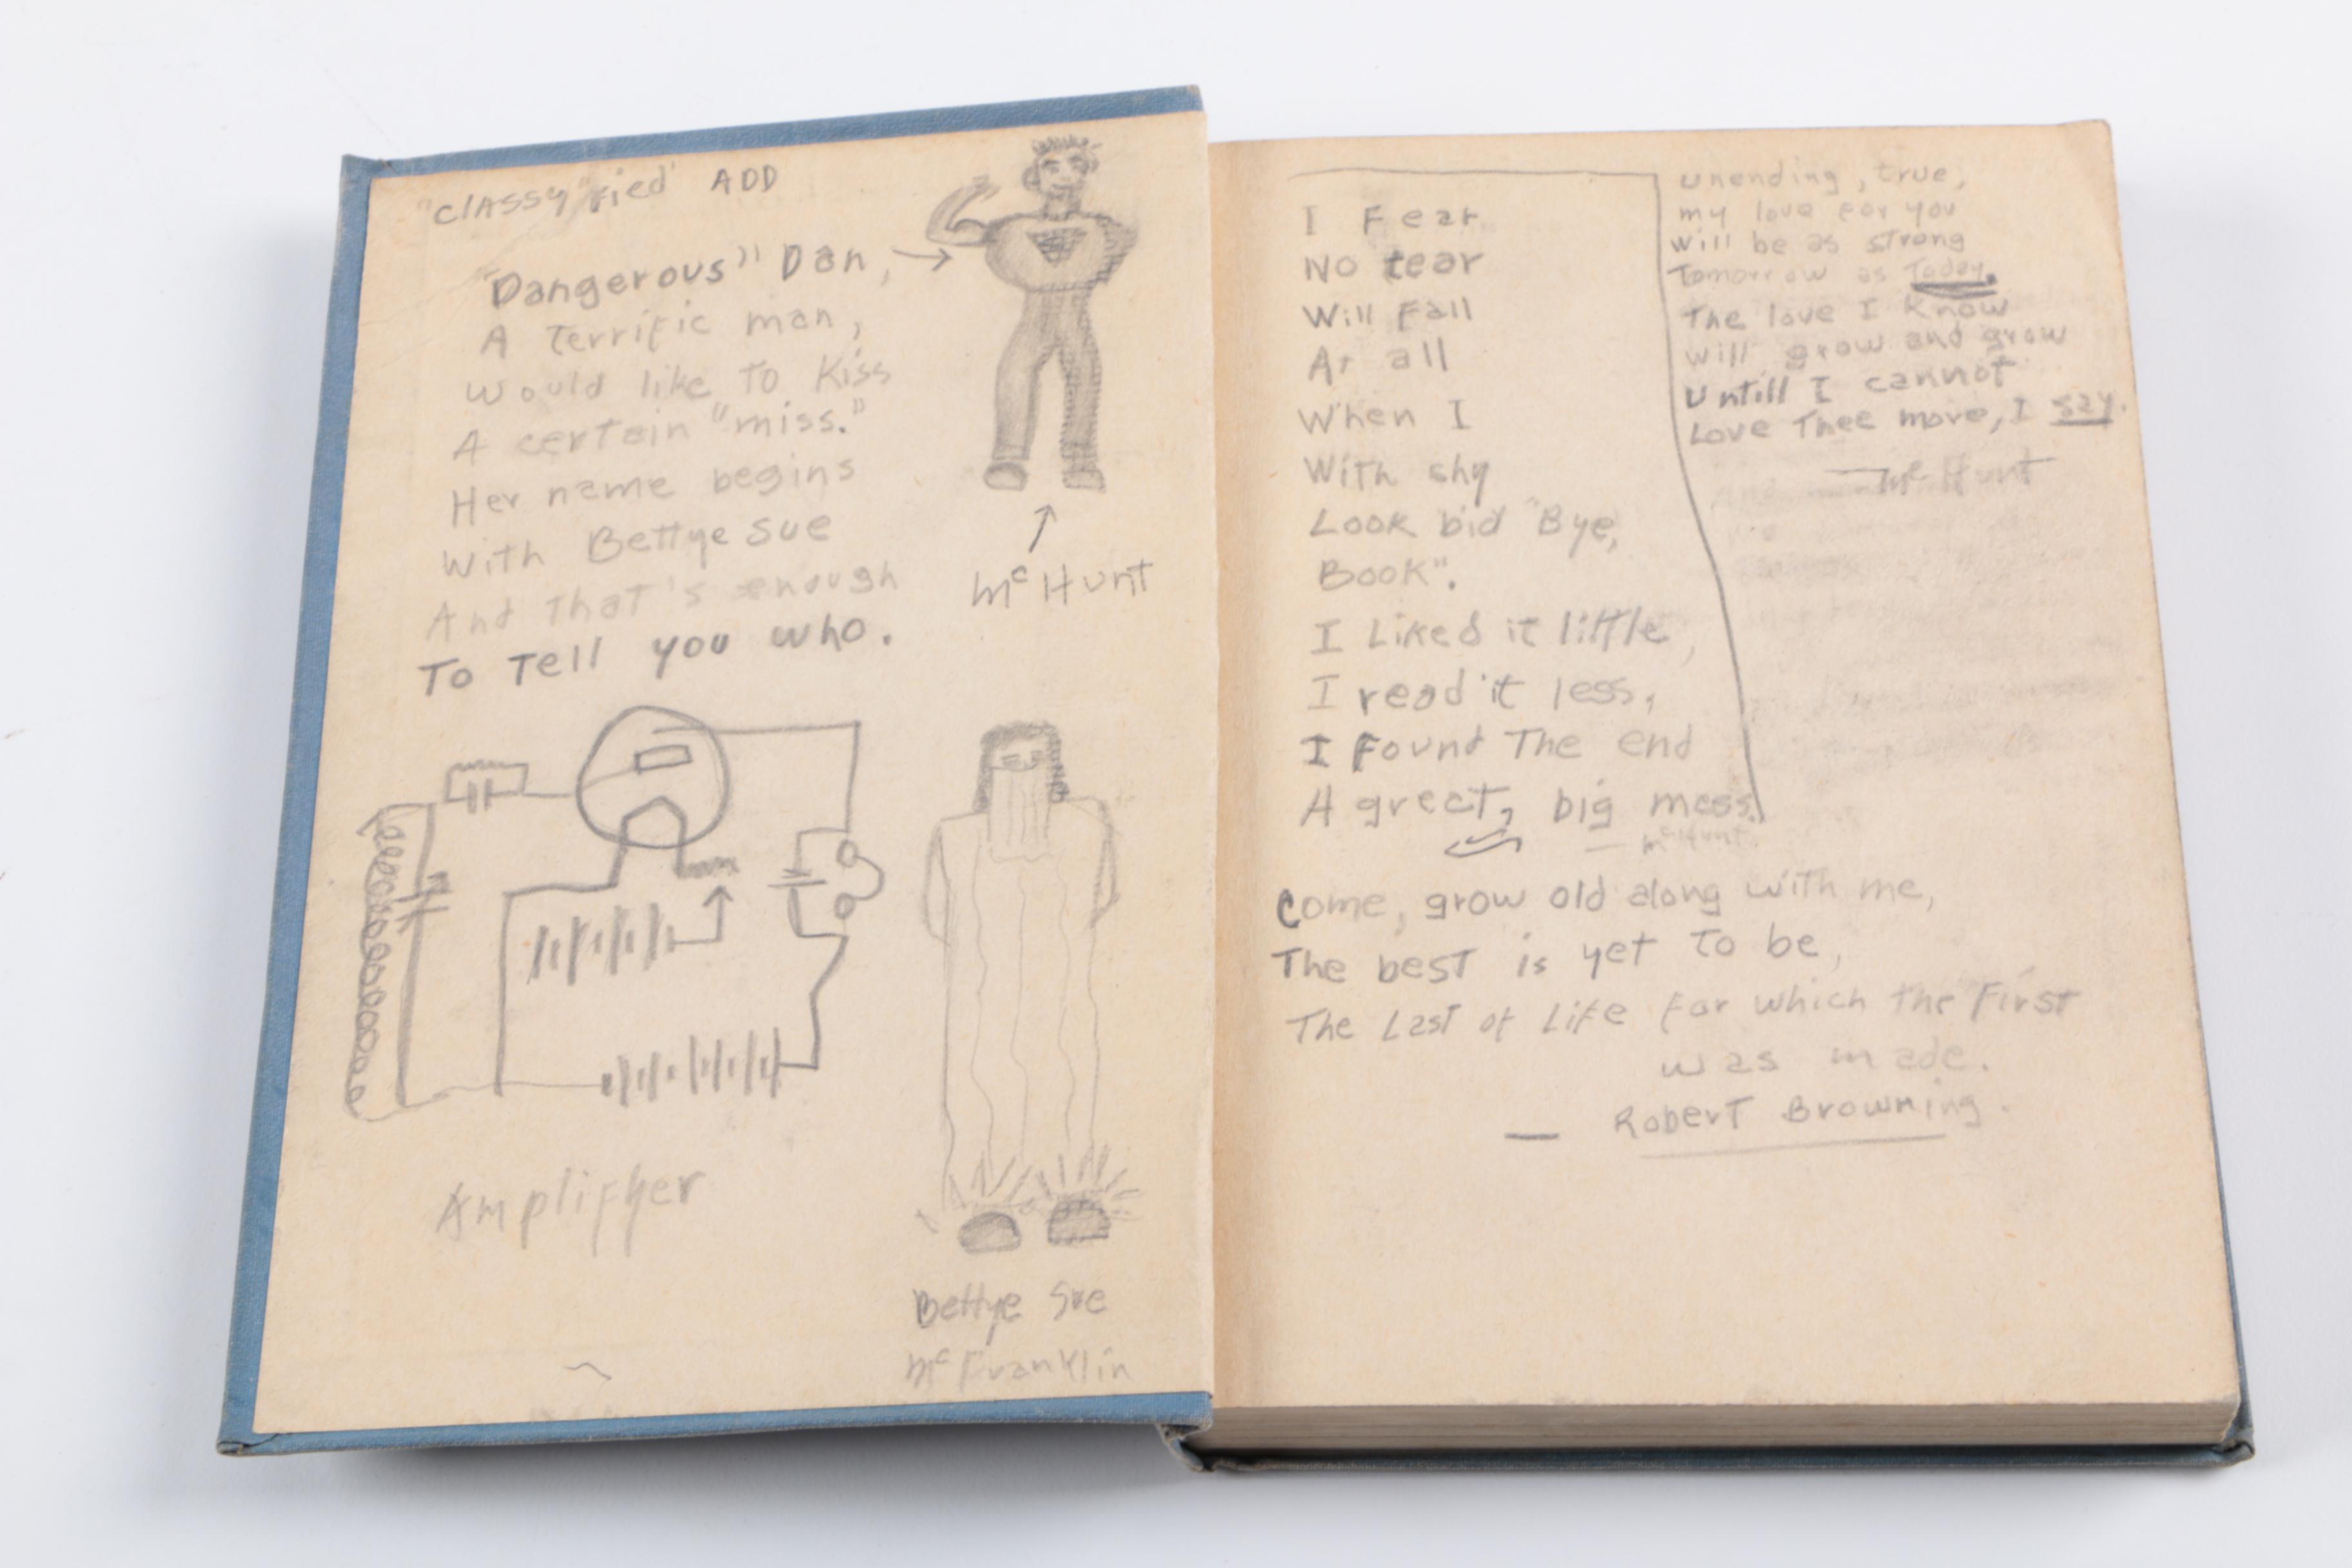 "classy"fied ADD
"Dangerous" Dan,
A terrific man,
Would like To Kiss
A certain "miss."
Her name begins
With Bettye Sue
And that's enough
To Tell you who.
McHunt
Amplifyer
Bettye Sue
McFranklin
I Fear
No tear
Will Fall
At all
When I
With shy
Look bid "Bye,
Book".
I Liked it little,
I read it less,
I Found The end
A great, big mess.
— McHunt.
unending, true,
my love for you
will be as strong
Tomorrow as Today.
The love I Know
will grow and grow
Untill I cannot
Love Thee more, I say.
— McHunt
Come, grow old along with me,
The best is yet To be,
The Last of Life for which the First
was made.
— Robert Browning.